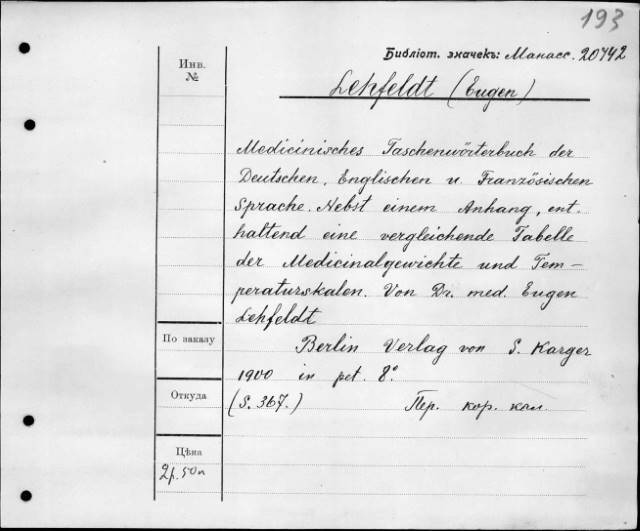 193
Библіот. значекъ: Манасс. 20742
Инв.
№
Lehfeldt (Eugen)
Medicinisches Taschenwörterbuch der
Deutschen, Englischen u. Französischen
Sprache. Nebst einem Anhang, ent-
haltend eine vergleichende Tabelle
der Medicinalgewichte und Tem-
peraturskalen. Von Dr. med. Eugen
Lehfeldt
По заказу
Berlin Verlag von S. Karger
1900 in pet. 8°.
Откуда
(S. 367.) Пер. кор. кол.
Цѣна
2р. 50к